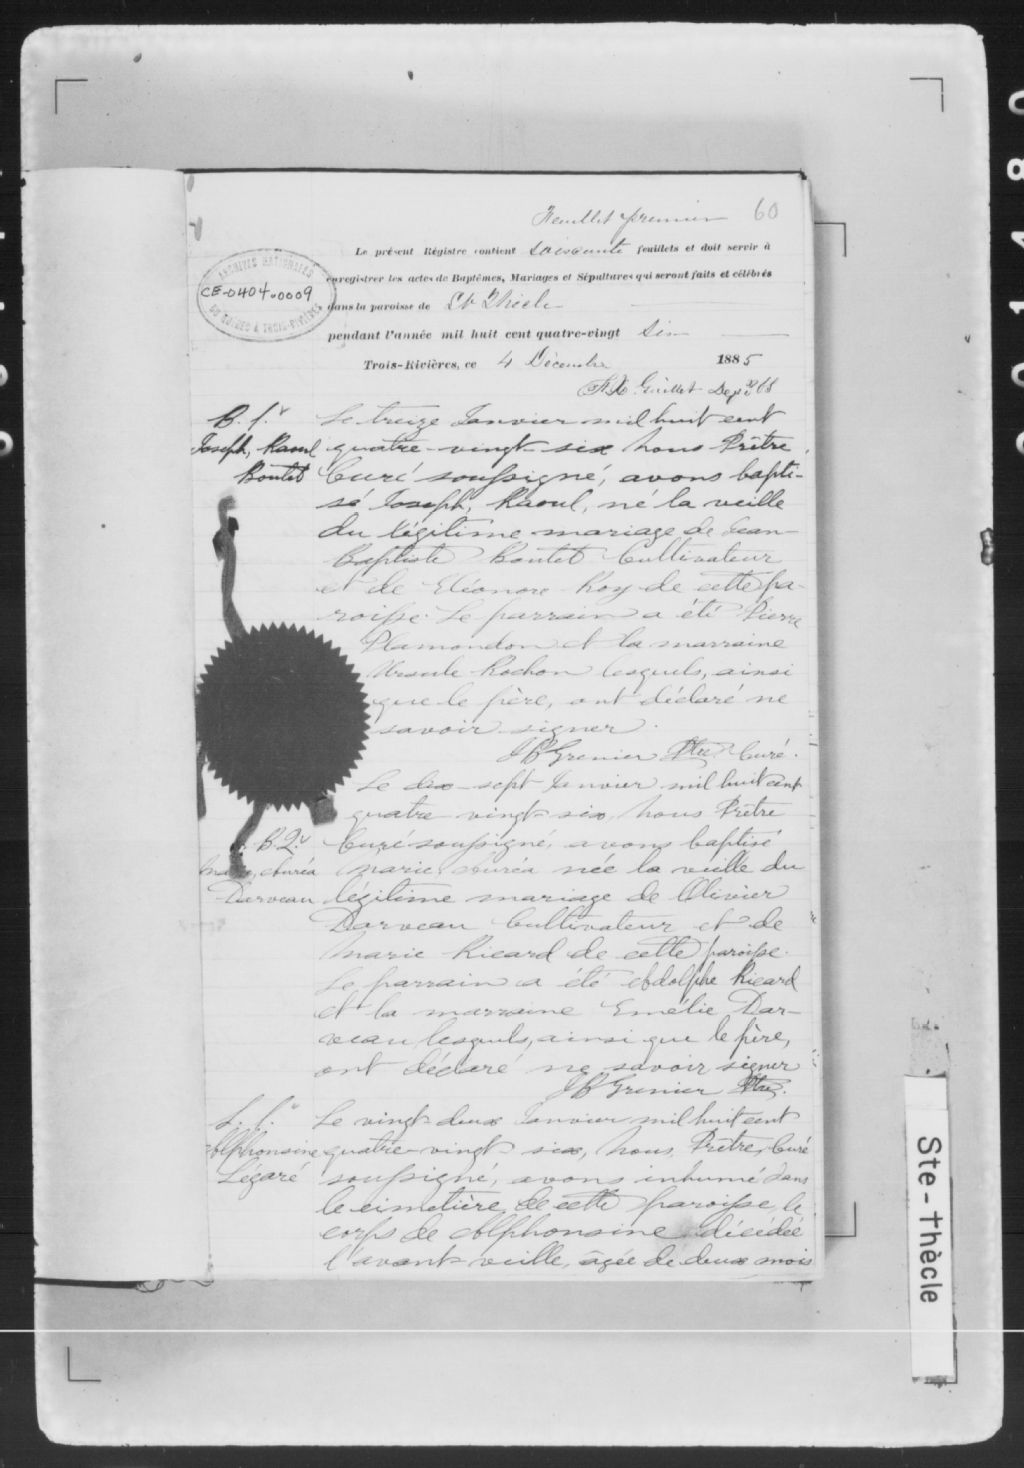 Feuillet premier 60
Le présent Régistre contient soixante feuillets et doit servir à
enregistrer les actes de Baptêmes, Mariages et Sépultures qui seront faits et célébrés
dans la paroisse de St Thècle
pendant l'année mil huit cent quatre-vingt Six
Trois-Rivières, ce 4 Décembre 1885
Guillet Dep
ARCHIVES NATIONALES
CE-0404-0009
DU QUÉBEC À TROIS-RIVIÈRES
B. 1.
Joseph, Raoul
Boutet
Le treize Janvier mil huit cent
quatre-vingt-six Nous Prêtre
Curé soussigné, avons bapti-
sé Joseph, Raoul, né la veille
du légitime mariage de Jean-
Baptiste Boutet Cultivateur
et de Eléonore Roy de cette pa-
roisse. Le parrain a été Pierre
Plamondon et la marraine
Ursule Rochon lesquels, ainsi
que le père, ont déclaré ne
savoir signer.
JBGrenier Ptre Curé.
B 2.
Darveau
Le dix-sept Janvier mil huit cent
quatre vingt-six Nous Prêtre
Curé soussigné, avons baptisé
Marie, née la veille du
légitime mariage de Olivier
Darveau Cultivateur et de
Marie Ricard de cette paroisse.
Le parrain a été Adolphe Ricard
et la marraine Emélie Dar-
veau lesquels, ainsi que le père,
ont déclaré ne savoir signer
JBGrenier Ptre.
S. 1.
Alphonsine
Légaré
Le vingt-deux Janvier mil huit cent
quatre-vingt six, Nous, Prêtre, Curé
soussigné, avons inhumé dans
le cimetière de cette paroisse, le
corps de Alphonsine décédée
l'avant-veille, âgée de deux mois
Ste-thècle